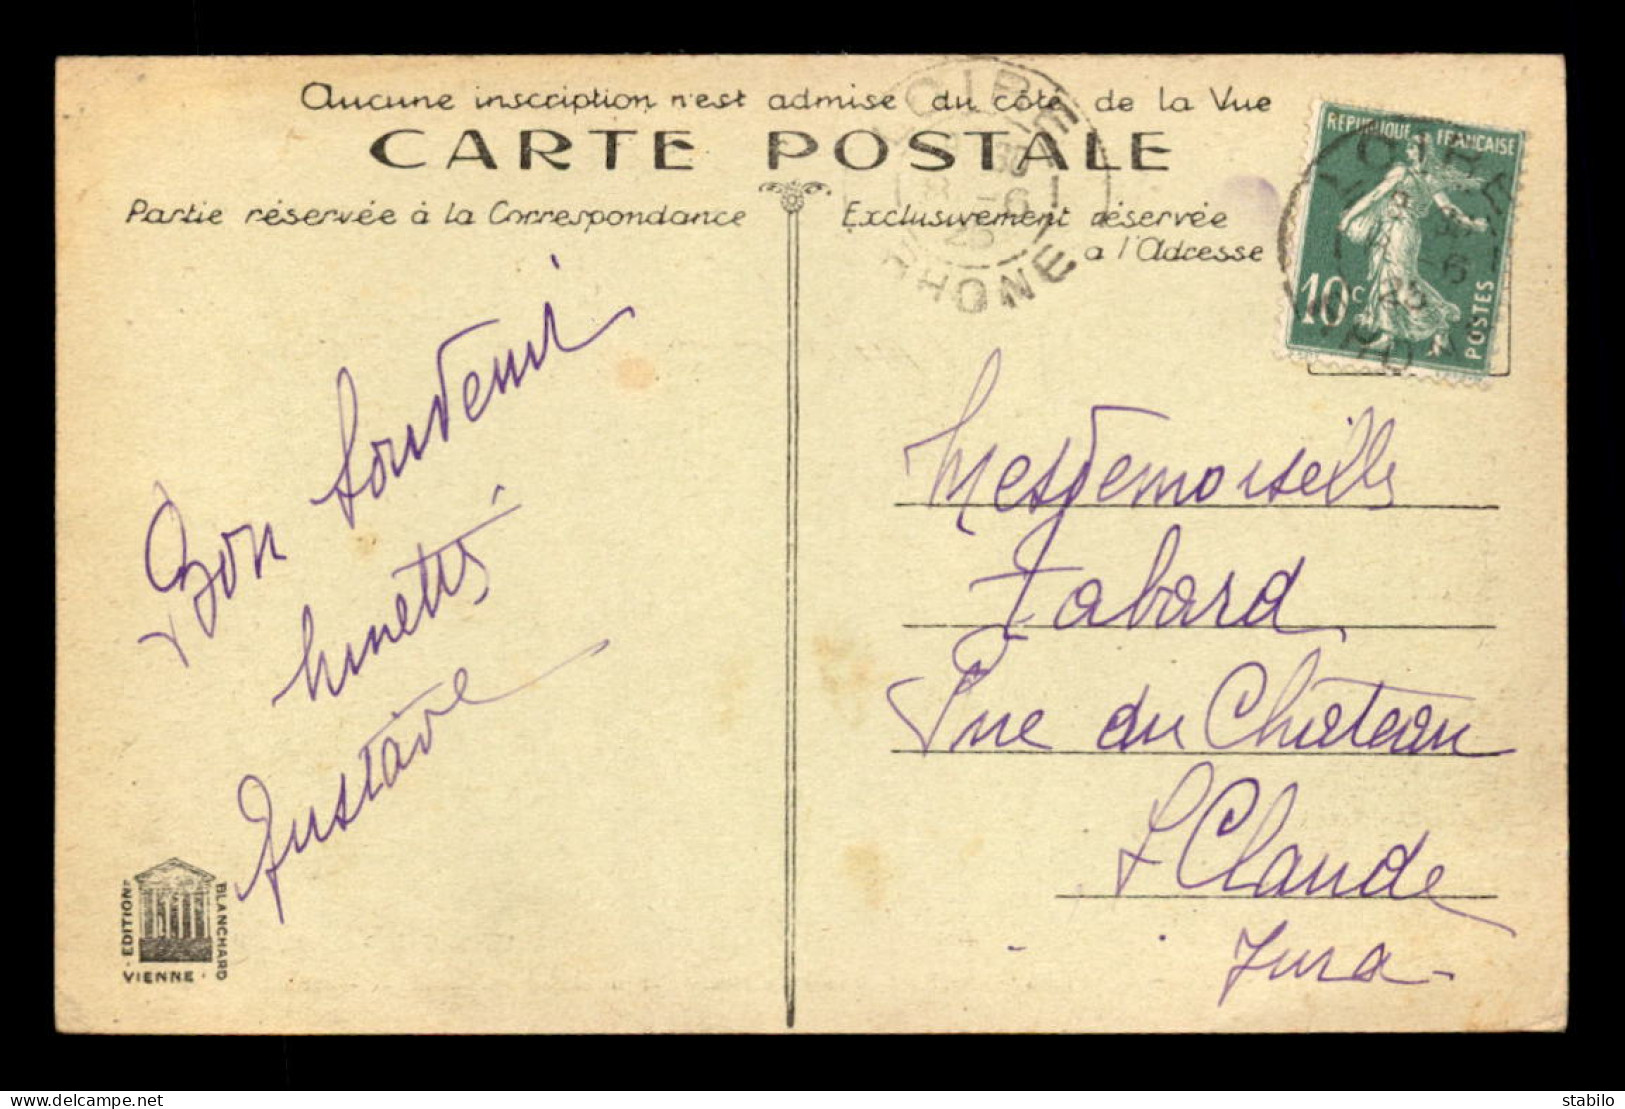 Aucune inscription n'est admise du côté de la Vue
CARTE POSTALE
Partie réservée à la Correspondance
Exclusivement réservée
a l'Adresse
REPUBLIQUE FRANCAISE
10c
POSTES
LOIRE
RHONE
8 -6
25
Bon Souvenir
Gustave
Mesdemoiselles
Tabard
Rue du Château
St Claude
Jura
EDITION BLANCHARD
VIENNE
delcampe.net
stabilo